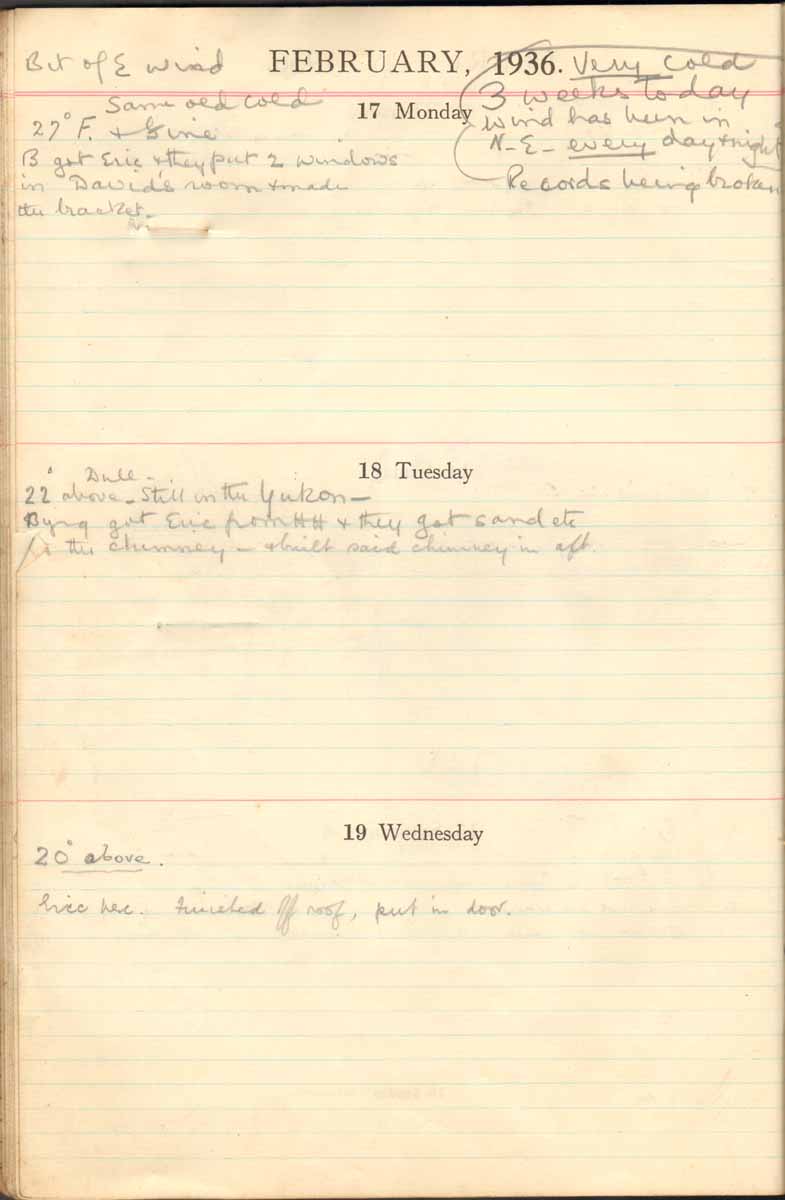 Bit of E wind
FEBRUARY, 1936.
Very cold
3 weeks today
wind has been in
N-E- every day & night
Records being broken
17 Monday
Same old cold
27° F. & fine
B got Eric & they put 2 windows
in David's room & made
the bracket.
18 Tuesday
Dull -
22° above - Still in the Yukon -
Byng got Eric from HH & they got sand etc
for the chimney - & built said chimney in aft.
19 Wednesday
20° above.
Eric here. Finished off roof, put in door.